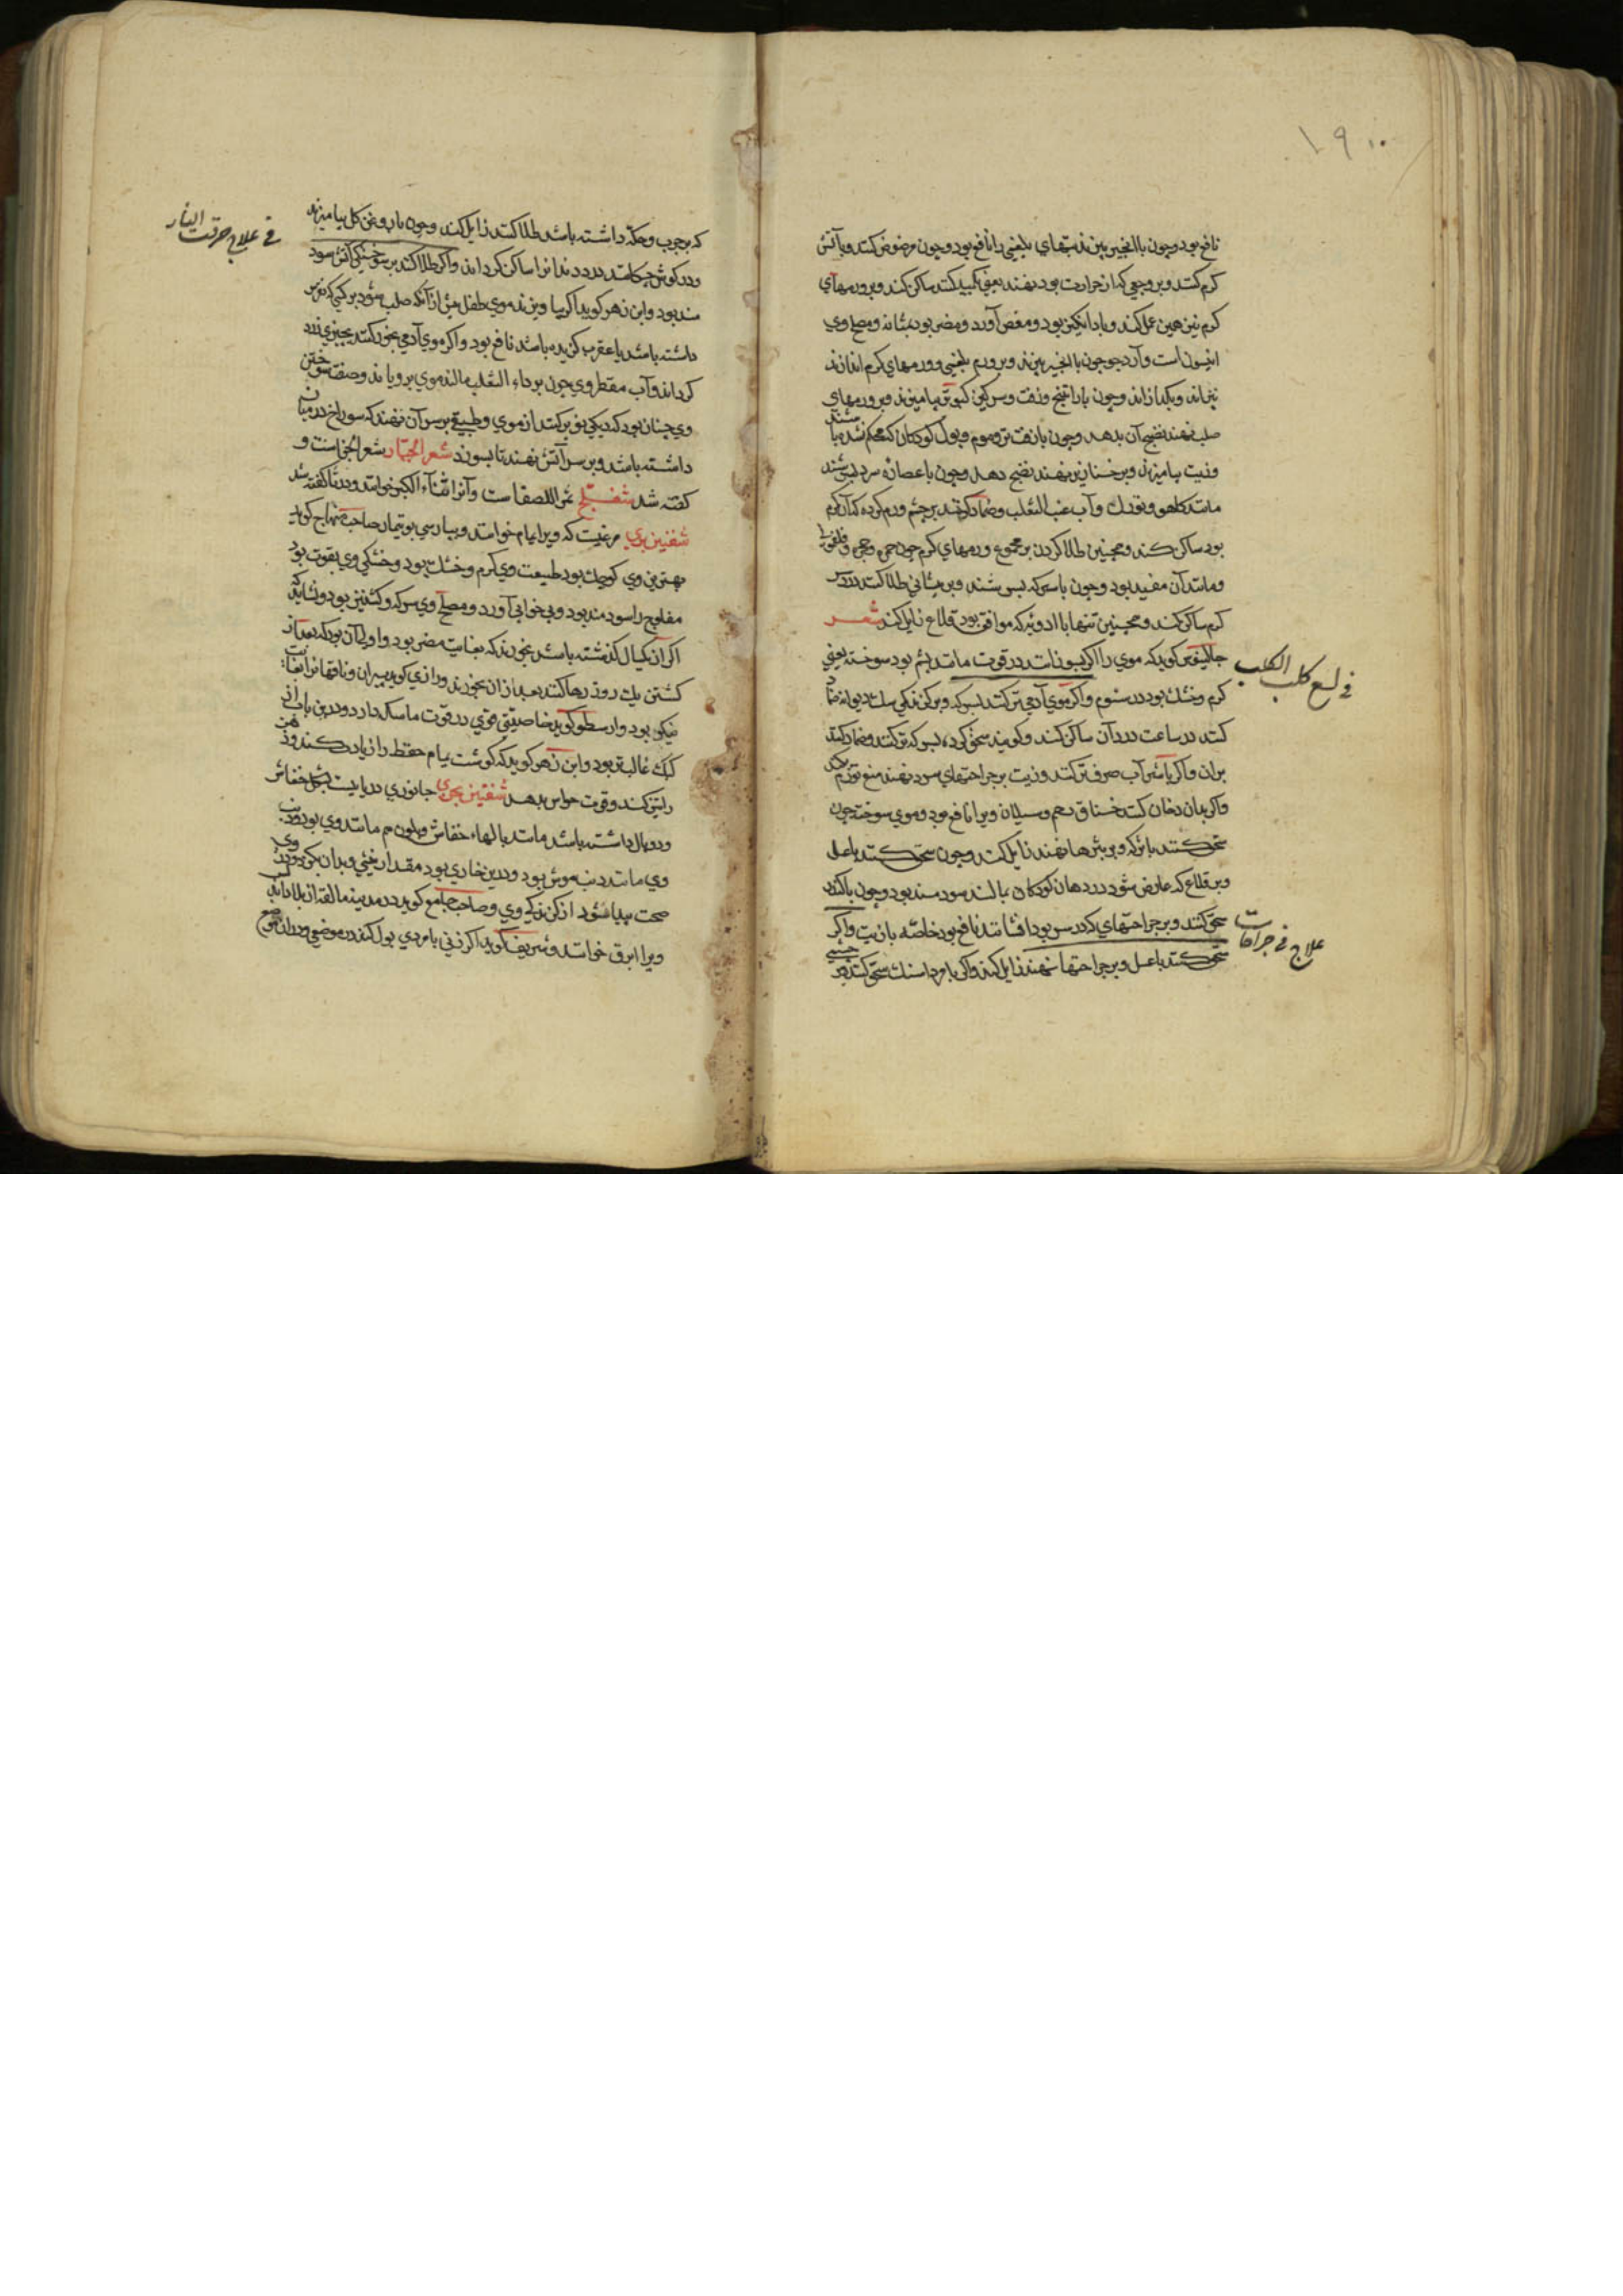 ۱۹۰
نافع بود و چون با انجیر بپزند تبهای بلغمی را نافع بود و چون مرضوض کنند و بآتش
کرم کنند و بر وجعی که از حرارت بود نهند یعنی تکمید کنند ساکن کند و بر ورمهای
کرم نیز همین عمل کند و بادانکیز بود و مغص آورد و مضر بود بمثانه و مصلح وی
انیسون است و آرد جو چون با انجیر بپزند و بر ورم بلغمی و ورمهای کرم اندازند
بپزاند و بکدازاند و چون با راتینج و زفت و سرکین کبوتر بیامیزند و بر ورمهای
صلب نهند نضج آن بدهد و چون با زفت تر و موم و بول کودکان که محکم نشده باشند
و زیت بیامیزند و بر خنازیر نهند نضج دهد و چون با عصارهٔ سرد بسرشند
مانند کاهو و تورک و آب عنب الثعلب و ضماد کنند بر چشم ورم کرده که آن کرم
بود ساکن کند و همچنین طلا کردن بر مجموع ورمهای کرم چون حمره و فلغمونی
و مانند آن مفید بود و چون با سرکه بسرشند و بر پیشانی طلا کنند درد سر
کرم ساکن کند و همچنین تنها با ادویه که موافق بود قلاع زایل کند شعر
جالینوس کوید که موی را اکر بسوزانند در قوت مانند پشم بود سوخته یعنی
فی لسع کلب الکلب
کرم و خشک بود در سیوم و اکر موی آدمی تر کنند بسرکه و بر کزندکی سک دیوانه ضماد
کنند در ساعت درد آن ساکن کند و کویند سحق کرده بسرکه تر کنند و ضماد کنند
بران و اکر با شراب صرف تر کنند و زیت بر جراحتهای سر نهند منع تورم بکند
و اکر بدان دخان کنند خناق رحم و سیلان ویرا نافع بود و موی سوخته چون
سحق کنند با سرکه و بر بثرها نهند زایل کند و چون سحق کنند با عسل
و بر قلاع که عارض شود در دهان کودکان بمالند سودمند بود و چون با کندر
سحق کنند و بر جراحتهای که در سر بود افشانند نافع بود خاصه با زیت و اکر
علاج فی جراحات
سحق کنند با عسل و بر جراحتها نهند زایل کند و اکر با مرداسنک سحق کنند بر چشمی
که جرب و حکه داشته باشد طلا کنند زایل کند و چون با روغن کل بیامیزند
فی علاج حرقت النار
و در کوش چکانند درد دندانرا ساکن کرداند و اکر طلا کنند بر سوختکی آتش سود
مند بود و ابن زهر کوید اکر بیاویزند موی طفل پیش از آنکه صلب شود بر کسی که نقرس
داشته باشد یا عقرب کزیده باشد نافع بود و اکر موی آدمی بخور کنند بچیزی زرد
کرداند و آب مقطر وی چون بر داء الثعلب بمالند موی برویاند و صفت سوختن
وی چنان بود که دیکی نو پر کنند از موی و طبقی بر سر آن نهند که سوراخ در میان
داشته باشد و بر سر آتش نهند تا بسوزد شعر الجبار شعر الجن است و
کفته شد شفلّح ثمر اللصفا ست و آنرا قثاء الکبر خوانند و در قثا کفته شد
شفنین بری مرغیست که ویرا یمام خوانند و بپارسی بوتیمار صاحب منهاج کوید
بهترین وی کوچک بود طبیعت وی کرم و خشک بود و خشکی وی بقوت بود
مفلوج را سودمند بود و بی خوابی آورد و مصلح وی سرکه و کشنیز بود و نشاید که
اکر از یکسال کذشته باشد بخورند که بغایت مضر بود و اولی آن بود که بعد از
کشتن یک روز رها کنند بعد از ان بخورند و رازی کوید پیران و ناقهانرا بغایت
نیکو بود و ارسطو کوید خاصیتی قوی در قوت ماسکه دارد و درین باب از
کبک غالبتر بود و ابن زهر کوید که کوشت یمام حفظ را زیاد کند و ذهن
را تیز کند و قوت حواس بدهد شفنین بحری جانوری دریاییست بشکل خفاش
و دو بال داشته باشد مانند بالهاء خفاش و بلون هم مانند وی بود و ذنب
وی مانند ذنب موش بود و درین خاری بود مقدار نیخی و بدان بکزد و در وی
صحت پیدا شود از کزندکی وی و صاحب جامع کوید در مدینه مالقه از بلاد اندلس
ویرا ابرق خوانند و شریف کوید اکر زنی یا مردی بول کند در موضعی و در ان موضع